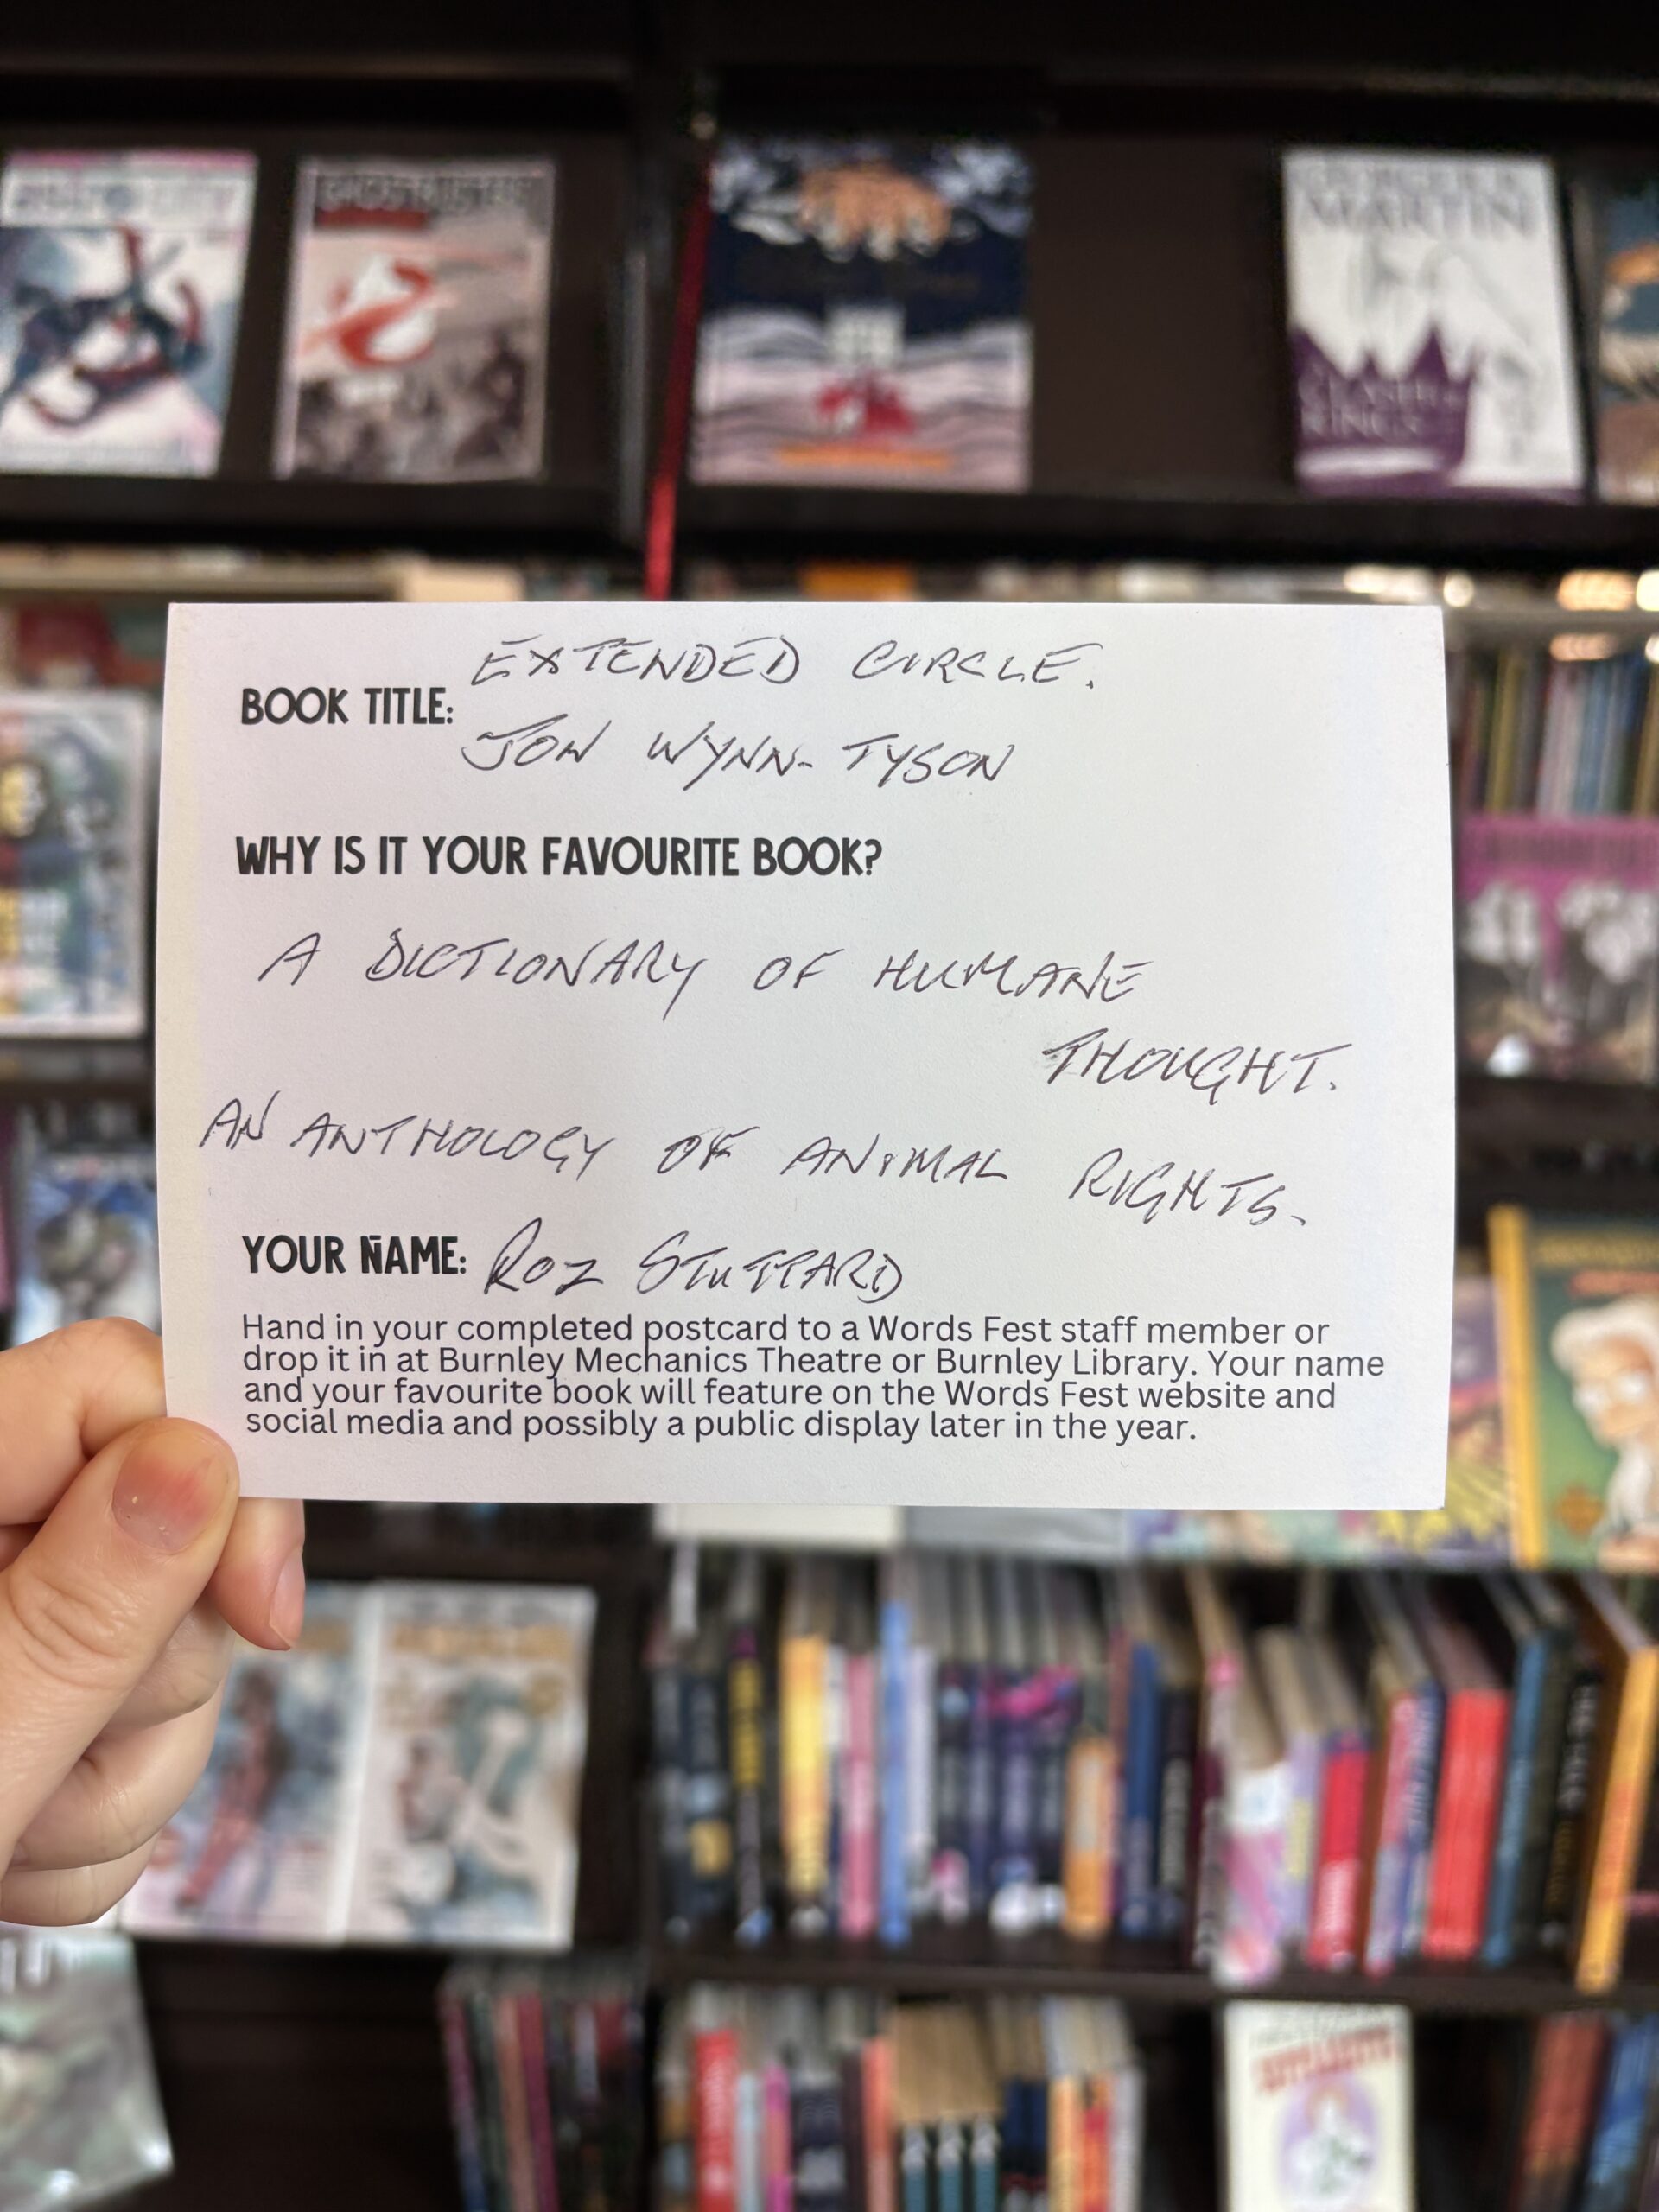 GHOSTBUSTERS
GEORGE R.R.
MARTIN
A CLASH OF
KINGS
EXTENDED CIRCLE.
BOOK TITLE:
JON WYNN-TYSON
WHY IS IT YOUR FAVOURITE BOOK?
A DICTIONARY OF HUMANE
THOUGHT.
AN ANTHOLOGY OF ANIMAL RIGHTS.
YOUR NAME: ROZ STUTTARD
Hand in your completed postcard to a Words Fest staff member or
drop it in at Burnley Mechanics Theatre or Burnley Library. Your name
and your favourite book will feature on the Words Fest website and
social media and possibly a public display later in the year.